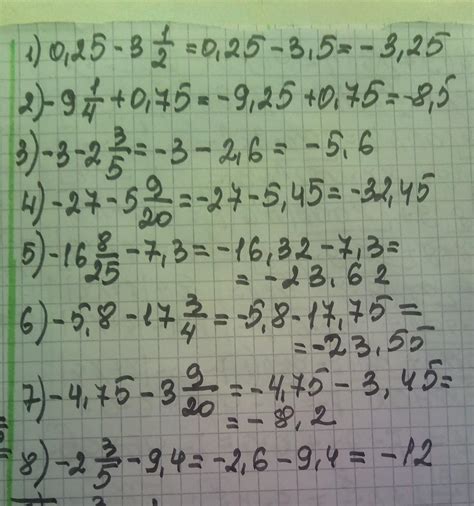 1) 0,25 - 3 1/2 = 0,25 - 3,5 = -3,25
2) -9 1/4 + 0,75 = -9,25 + 0,75 = -8,5
3) -3 - 2 3/5 = -3 - 2,6 = -5,6
4) -27 - 5 9/20 = -27 - 5,45 = -32,45
5) -16 8/25 - 7,3 = -16,32 - 7,3 =
= -23,62
6) -5,8 - 17 3/4 = -5,8 - 17,75 =
= -23,55
7) -4,75 - 3 9/20 = -4,75 - 3,45 =
= -8,2
8) -2 3/5 - 9,4 = -2,6 - 9,4 = -12